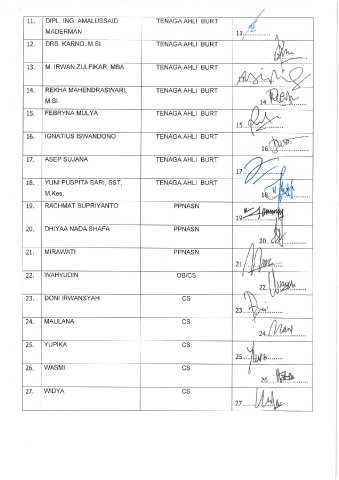 11. DIPL. ING. AMALUSSAID TENAGA AHLI BURT 11
MADERMAN
12. DRS. KARNO, M.SI. TENAGA AHLI BURT
13. M. IRWAN ZULFIKAR, MBA TENAGA AHLI BURT
14. REKHA MAHENDRASWARI, TENAGA AHLI BURT 14.
M.SI.
15. FEBRYNA MULYA TENAGA AHLI BURT 15
16. IGNATIUS ISWANDONO TENAGA AHLI BURT 16
17. ASEP SUJANA TENAGA AHLI BURT 17
18. YUNI PUSPITA SARI, SST, TENAGA AHLI BURT 18
M.Kes.
19. RACHMAT SUPRIYANTO PPNASN 19
20. DHIYAA NADA SHAFA PPNASN 20
21. MIRAWATI PPNASN 21
22. WAHYUDIN OB/CS 22
23. DONI IRWANSYAH CS 23
24. MAULANA CS 24
25. YUPIKA CS 25
26. WASMI CS 26
27. WIDYA CS 27